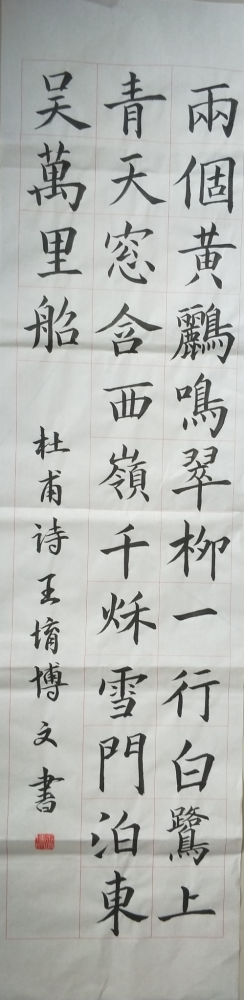 兩個黃鸝鳴翠柳一行白鷺上
青天窓含西嶺千秌雪門泊東
吴萬里船
杜甫诗王堉博文書